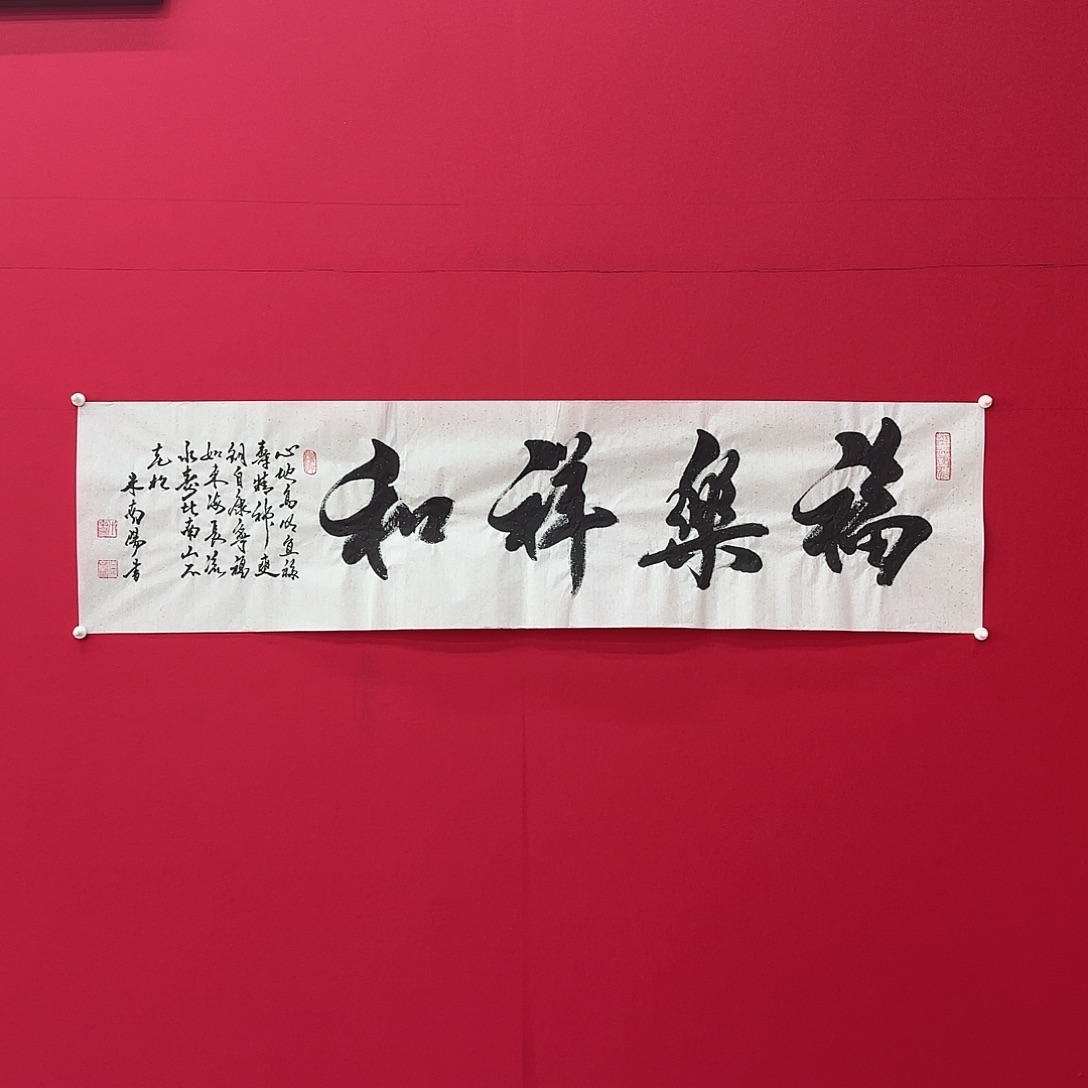 福樂祥和
心地高明宜祿
壽精神爽
朗自康寧福
如东海長流
水壽比南山不
老松
米南陽書